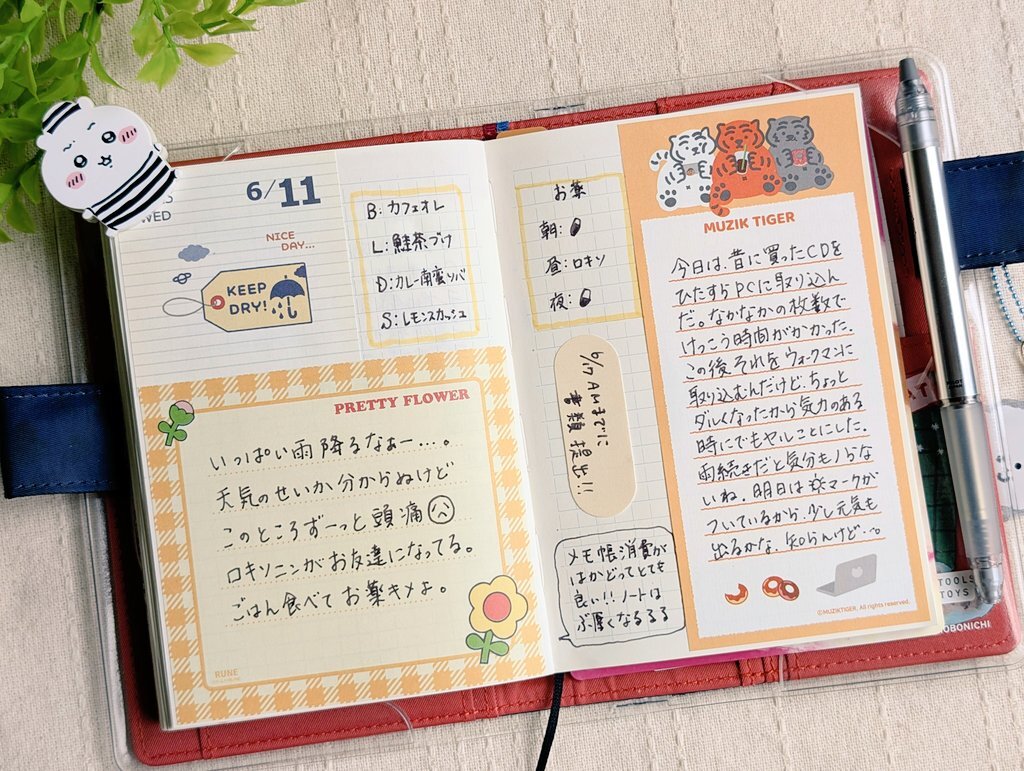 6/11
WED
NICE
DAY...
KEEP
DRY!
B: カフェオレ
L: 鮭茶づけ
D: カレー南蛮ソバ
S: レモンスカッシュ
PRETTY FLOWER
いっぱい雨降るなぁー…。
天気のせいか分からぬけど
このところずーっと頭痛
ロキソニンがお友達になってる。
ごはん食べてお薬キメよ。
RUNE
お薬
朝:
昼: ロキソ
夜:
6/17 AMまでに
書類提出!!
メモ帳消費が
はかどってとても
良い!! ノートは
ぶ厚くなるるる
MUZIK TIGER
今日は、昔に買ったCDを
ひたすらPCに取り込ん
だ。なかなかの枚数で
けっこう時間がかかった。
この後それをウォークマンに
取り込むんだけど、ちょっと
ダルくなったから気力のある
時にでもヤルことにした。
雨続きだと気分もノらな
いね。明日は☼マークが
ついているから、少し元気も
出るかな、知らんけど…。
©MUZIKTIGER, All rights reserved.
TOOLS
TOYS
HOBONICHI